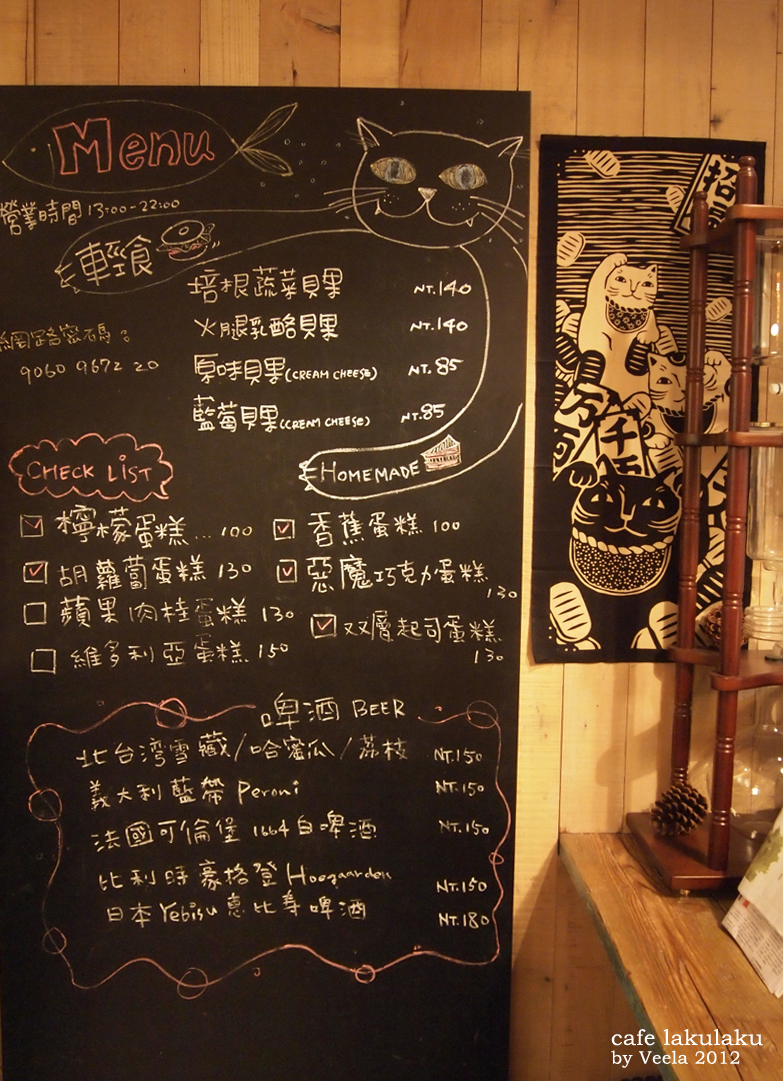 Menu
營業時間 13:00-22:00
輕食
培根蔬菜貝果 NT.140
火腿乳酪貝果 NT.140
原味貝果(CREAM CHEESE) NT.85
藍莓貝果(CREAM CHEESE) NT.85
網路密碼:
9060 9672 20
CHECK LiST
HOMEMADE
檸檬蛋糕...100
香蕉蛋糕 100
胡蘿蔔蛋糕 130
惡魔巧克力蛋糕
130
蘋果肉桂蛋糕 130
双層起司蛋糕
130
維多利亞蛋糕 150
啤酒 BEER
北台湾雪藏/哈蜜瓜/荔枝 NT.150
義大利藍帶 Peroni NT.150
法國可倫堡 1664白啤酒 NT.150
比利時豪格登 Hoegaarden NT.150
日本Yebisu惠比寿啤酒 NT.180
招
千
万
cafe lakulaku
by Veela 2012